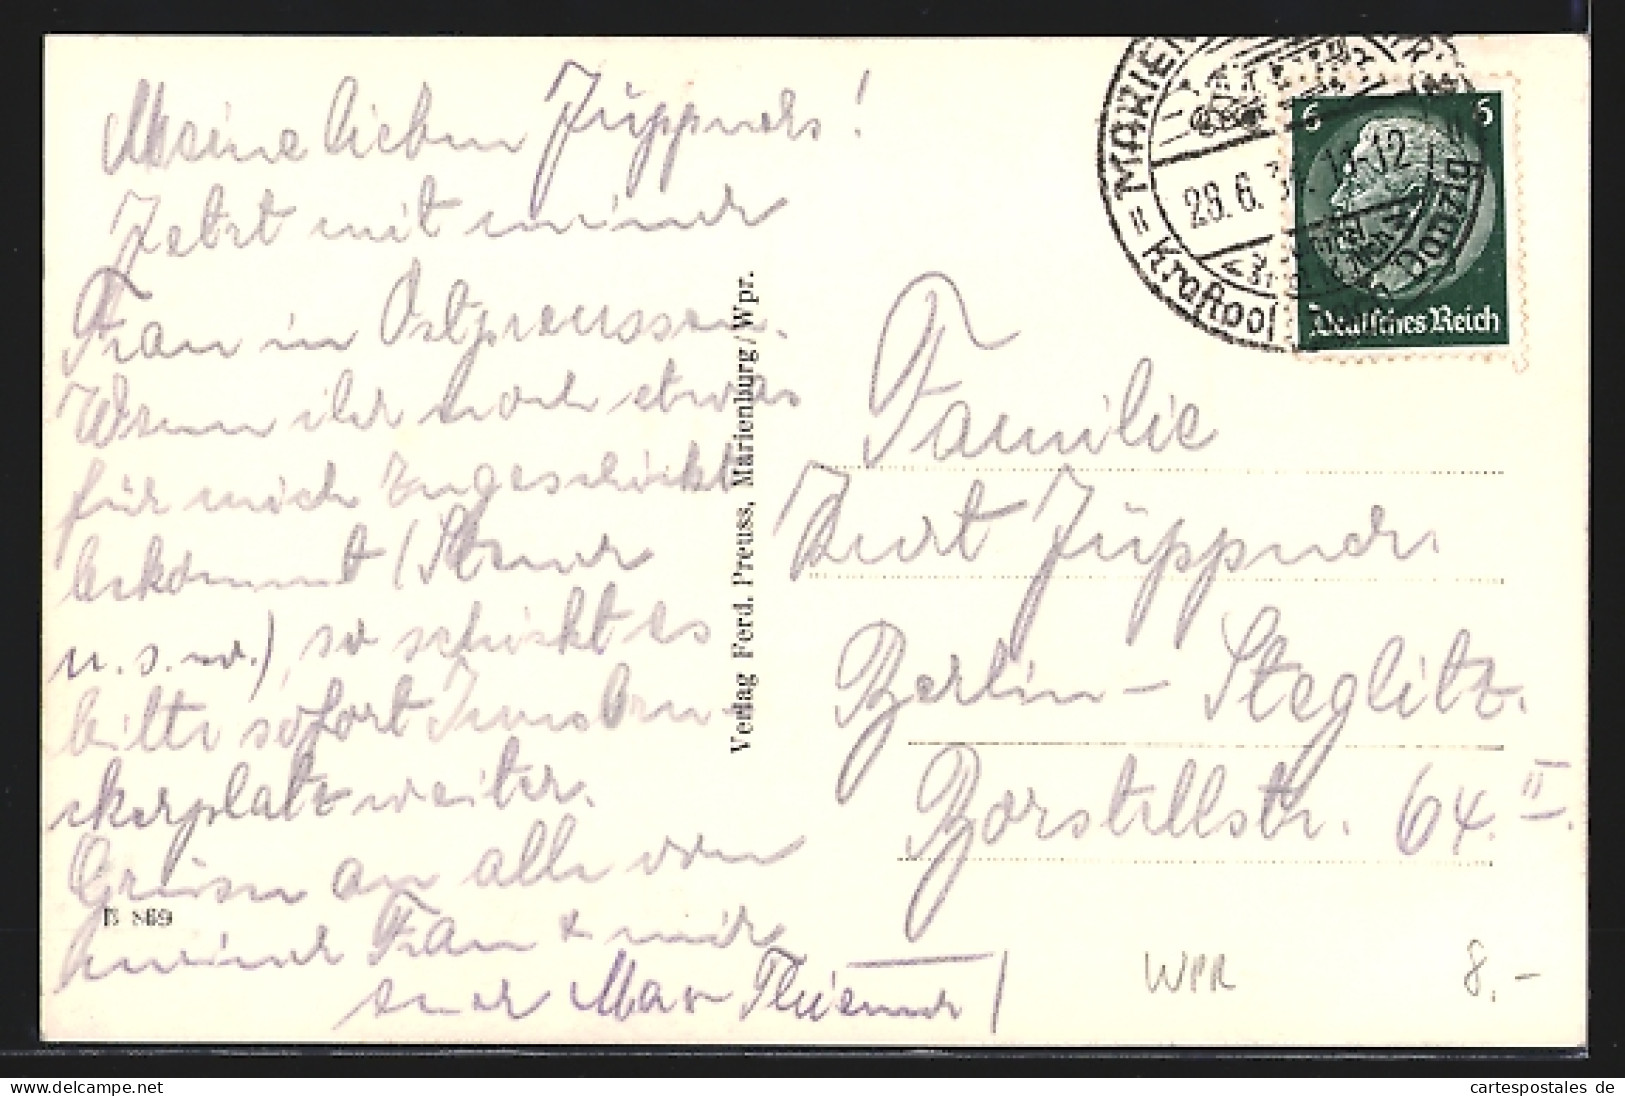 Meine lieben Jüppners!
Jetzt mit meiner
Frau in Ostpreussen.
Wenn ihr noch etwas
für mich zugeschickt
bekommt (Steuer
u.s.w.), so schickt es
bitte sofort Innsbru-
ckerplatz weiter.
Grüsse an alle von
meiner Frau & mir
euer Max
B 869
Verlag Ferd. Preuss, Marienburg/Wpr.
= MARIEN
29. 6. 3 12
Kraftpo
Danzig
6 6
Deutsches Reich
Familie
Kurt Jüppner.
Berlin-Steglitz.
Borstellstr. 64. II.
WPR 8,-
cartespostales de